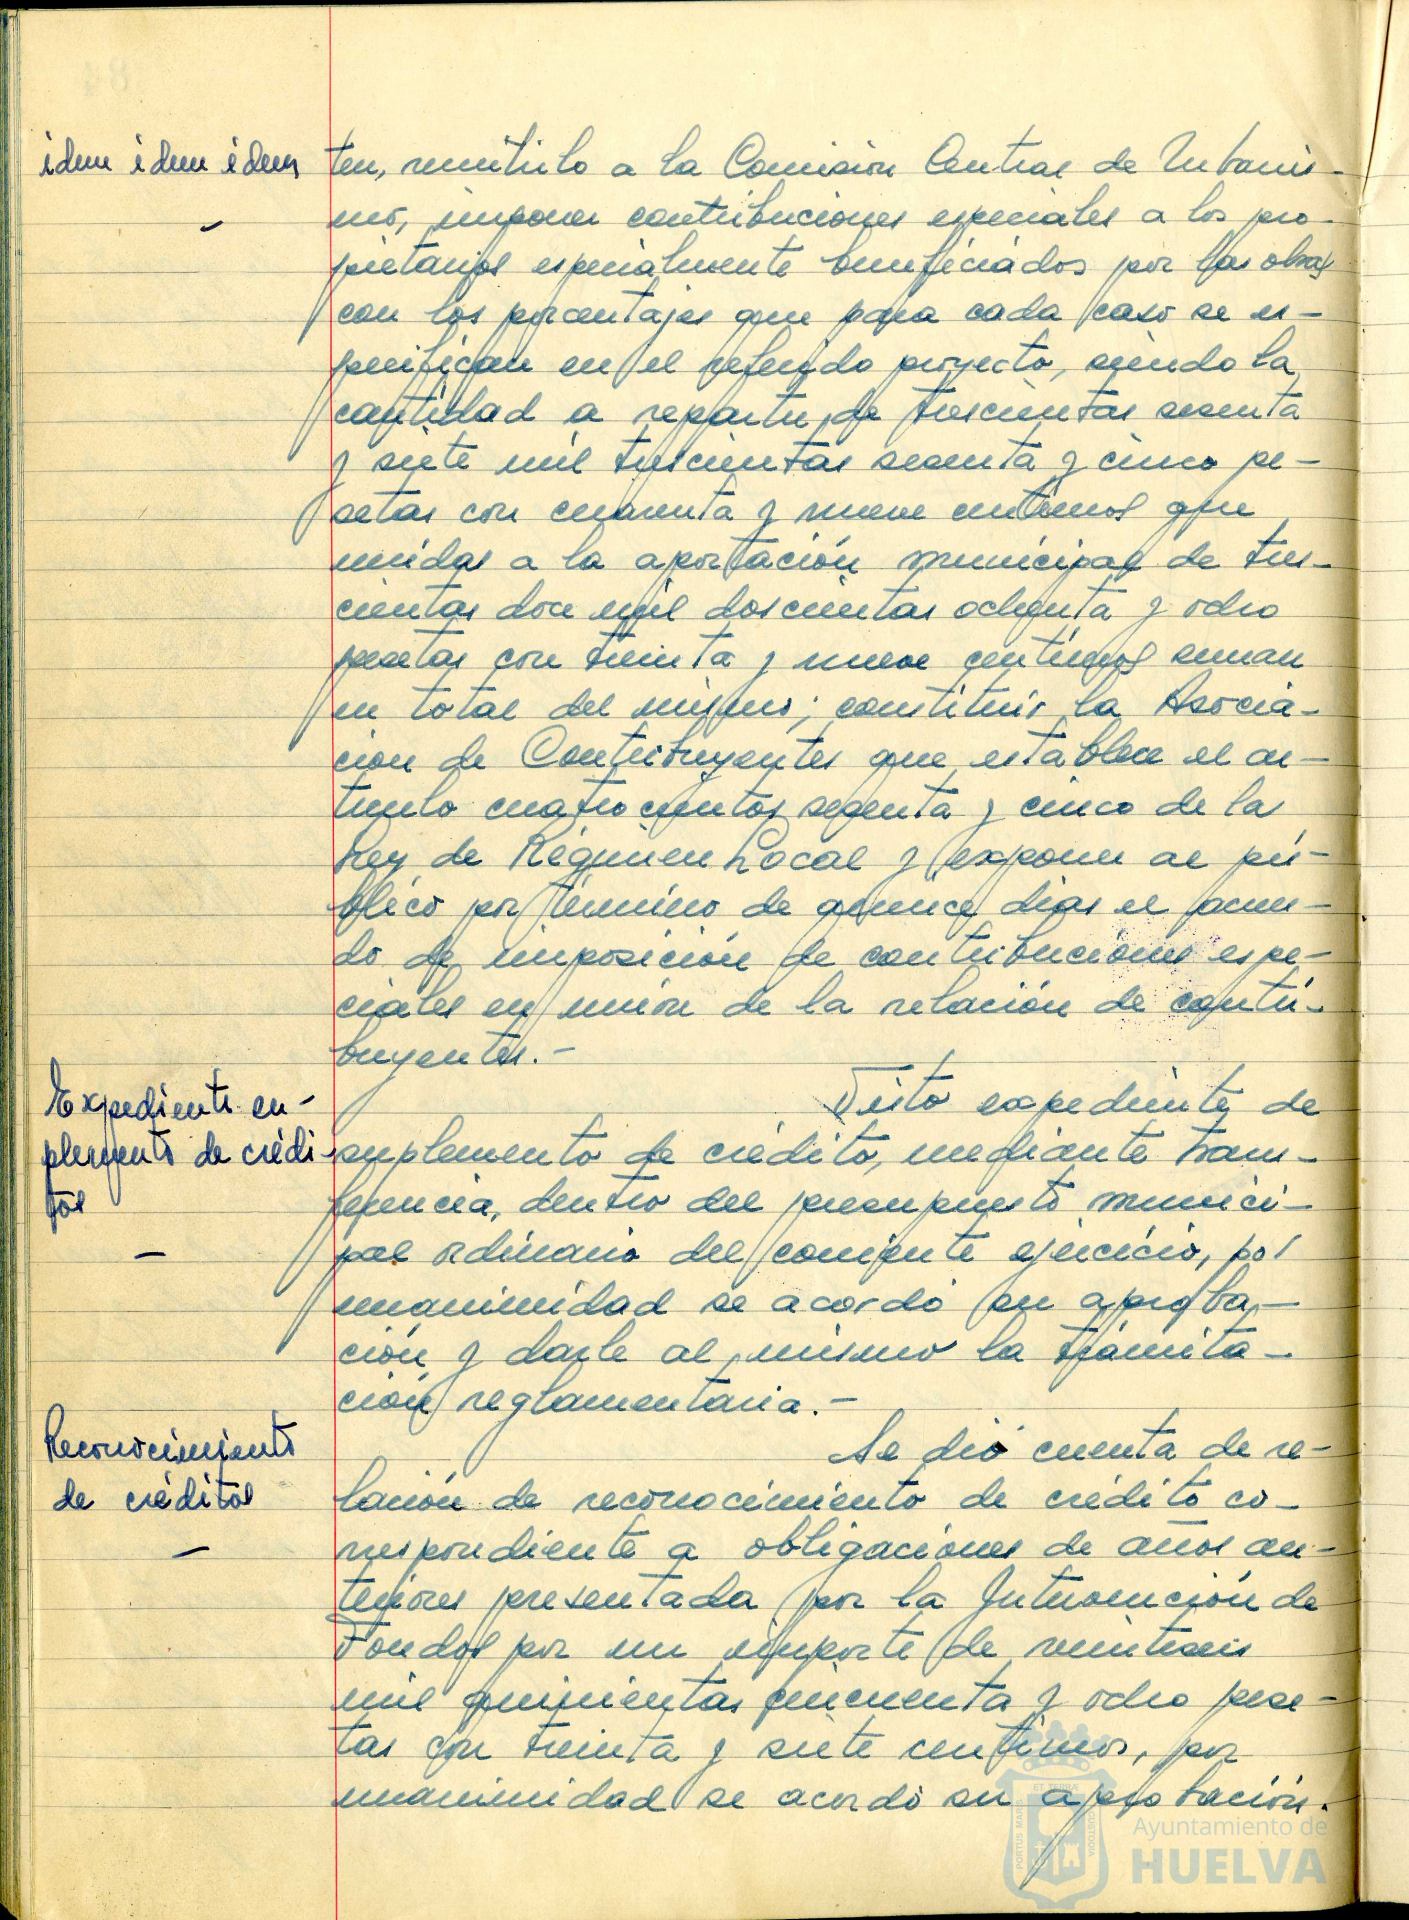 idem idem idem
ten, remitirlo a la Comisión Central de Urbanis-
mo, imponer contribuciones especiales a los pro-
pietarios especialmente beneficiados por las obras
con los porcentajes que para cada caso se es-
pecifican en el referido proyecto, siendo la
cantidad a repartir de trescientas sesenta
y siete mil trescientas sesenta y cinco pe-
setas con cuarenta y nueve centimos que
unidas a la aportación municipal de tres-
cientas doce mil doscientas ochenta y ocho
pesetas con treinta y nueve centimos suman
en total del mismo; constituir la Asocia-
cion de Contribuyentes que establece el ar-
ticulo cuatrocientos sesenta y cinco de la
Ley de Régimen Local y exponer al pú-
blico por término de quince dias el acuer-
do de imposición de contribuciones espe-
ciales en unión de la relación de contri-
buyentes.-
Expediente su-
plemento de crédi-
tos
Visto expediente de
suplemento de crédito, mediante trans-
ferencia, dentro del presupuesto munici-
pal ordinario del corriente ejercicio, por
unanimidad se acordó su aproba-
ción y darle al mismo la tramita-
ción reglamentaria.-
Reconocimiento
de créditos
Se dió cuenta de re-
lación de reconocimiento de crédito co-
rrespondiente a obligaciones de años an-
teriores presentada por la Intervención de
Fondos por un importe de veintiseis
mil quinientas cincuenta y ocho pese-
tas con treinta y siete centimos, por
unanimidad se acordó su aprobación.
PORTUS MARIS ET TERRAE CUSTODIA
Ayuntamiento de
HUELVA